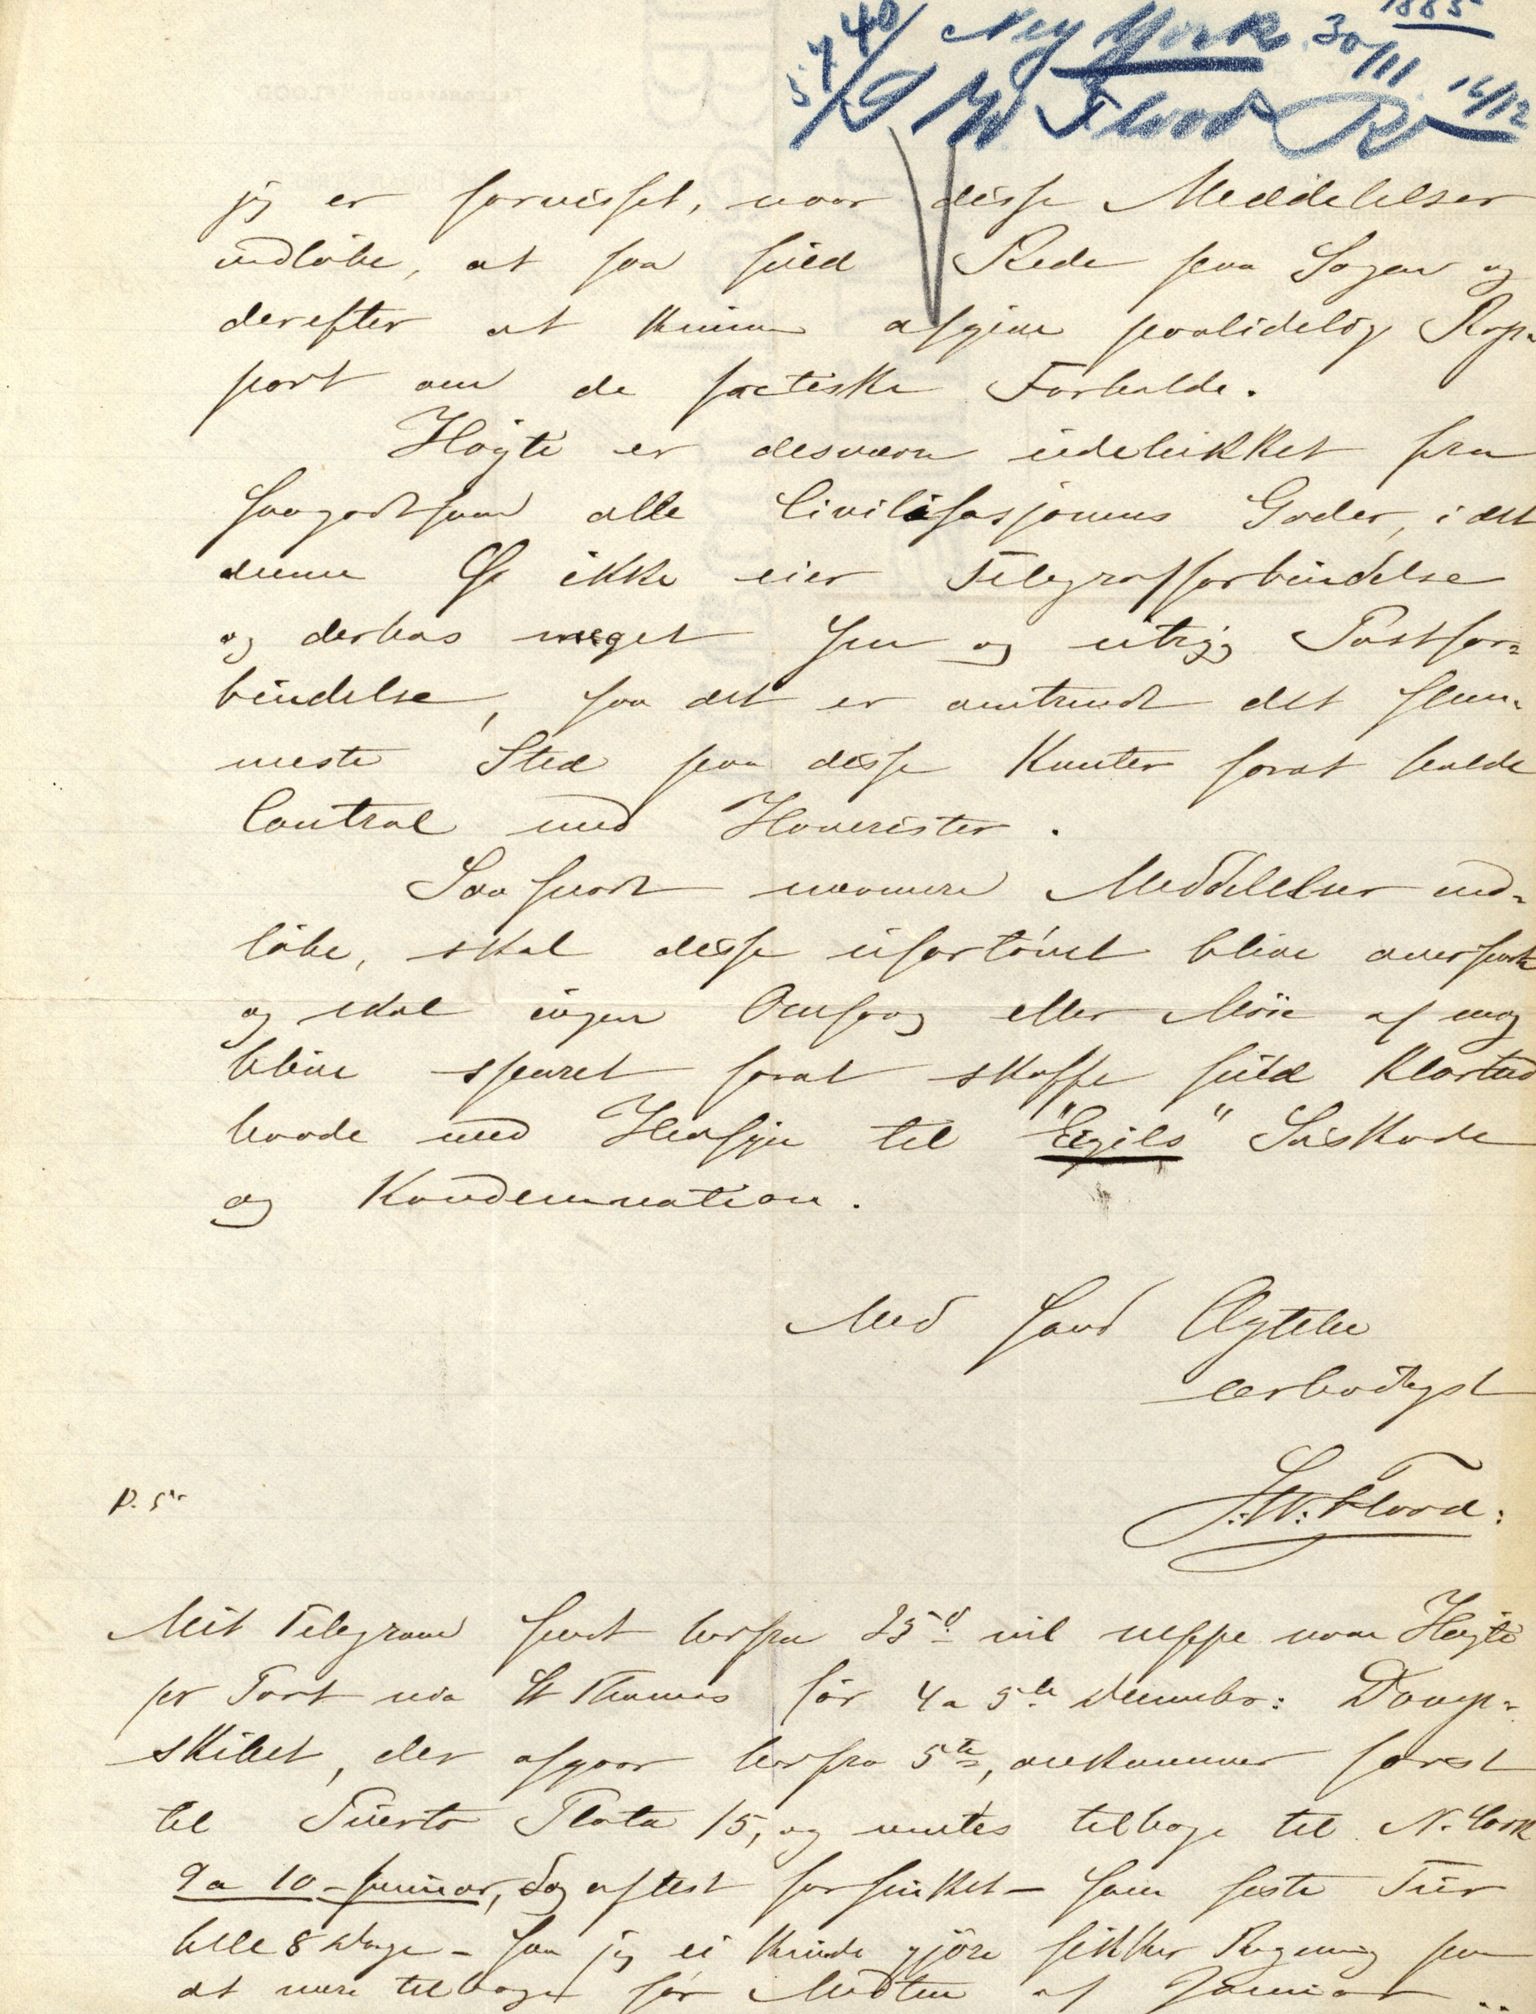 1885
5740 New York 30/11
W Flood 14/12
jeg er forvisset, naar disse Meddelelser
indløbe, at faa fuld Rede paa Sagen og
derefter at kunne afgive paalidelig Rap-
port om de factiske Forholde.
Hayti er desværre udelukket fra
saagodtsom alle Civilisasjonens Goder, idet
denne Ø ikke eier Telegrafforbindelse
og derhos meget sen og utryg Postfor-
bindelse, saa det er omtrendt det slem-
meste Sted paa disse Kanter forat holde
Control med Havarister.
Saasnart nærmere Meddelelser ind-
løbe, skal disse ufortøvet blive oversendt
og skal ingen Omsorg eller Møie af mig
blive sparet forat skaffe fuld Klarhed
baade med Hensyn til "Egils" Søskade
og Kondemnation.
Med sand Agtelse
ærbødigst
S. W. Flood.
P. S.
Mit Telegram sendt herfra 25d vil neppe naa Hayti
pr Post via St Thomas før 4 a 5te Decembr: Damp-
skibet, der afgaar herfra 5te, ankommer først
til Puerto Plata 15, og ventes tilbage til N. York
9 a 10 Januar, dog oftest forsinket — som siste Tur
hele 8 Dage — saa jeg ei kunde gjøre sikker Regning paa
at være tilbage før Midten af Januar.